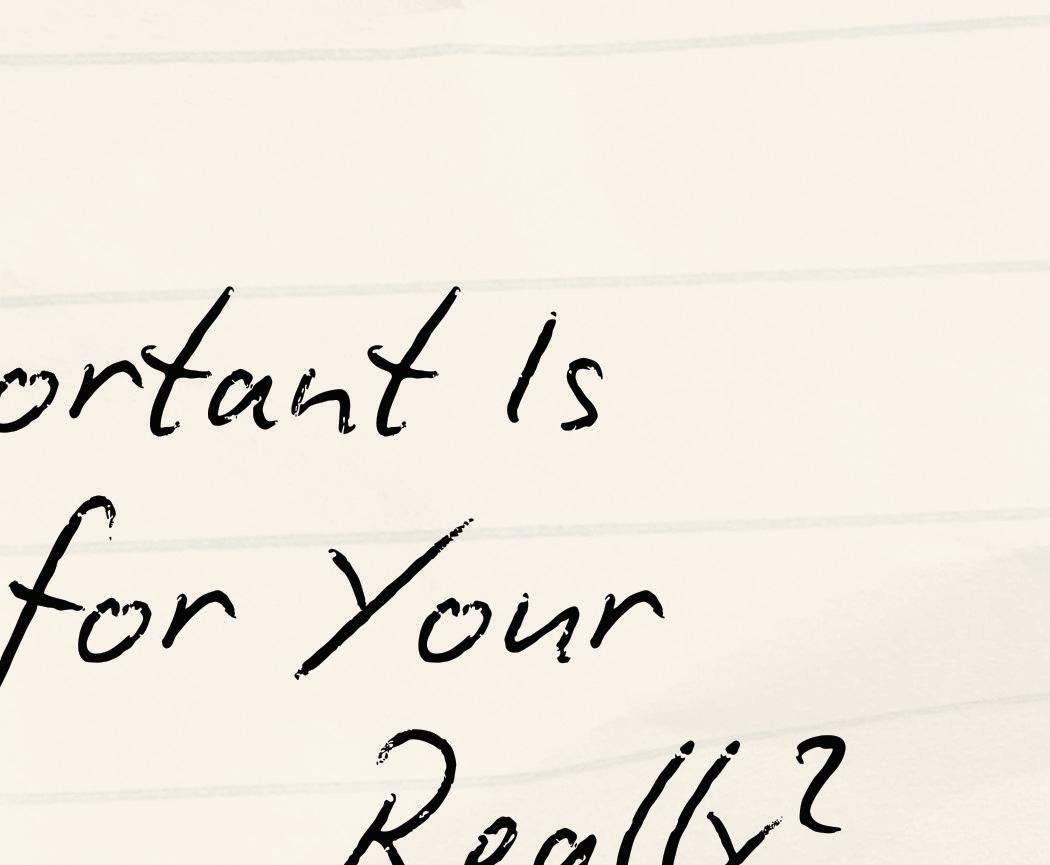 ortant Is
for Your
Really?